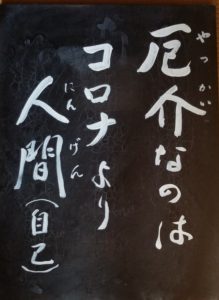 厄介なのは
やっかい
コロナより
人間(自己)
にんげん